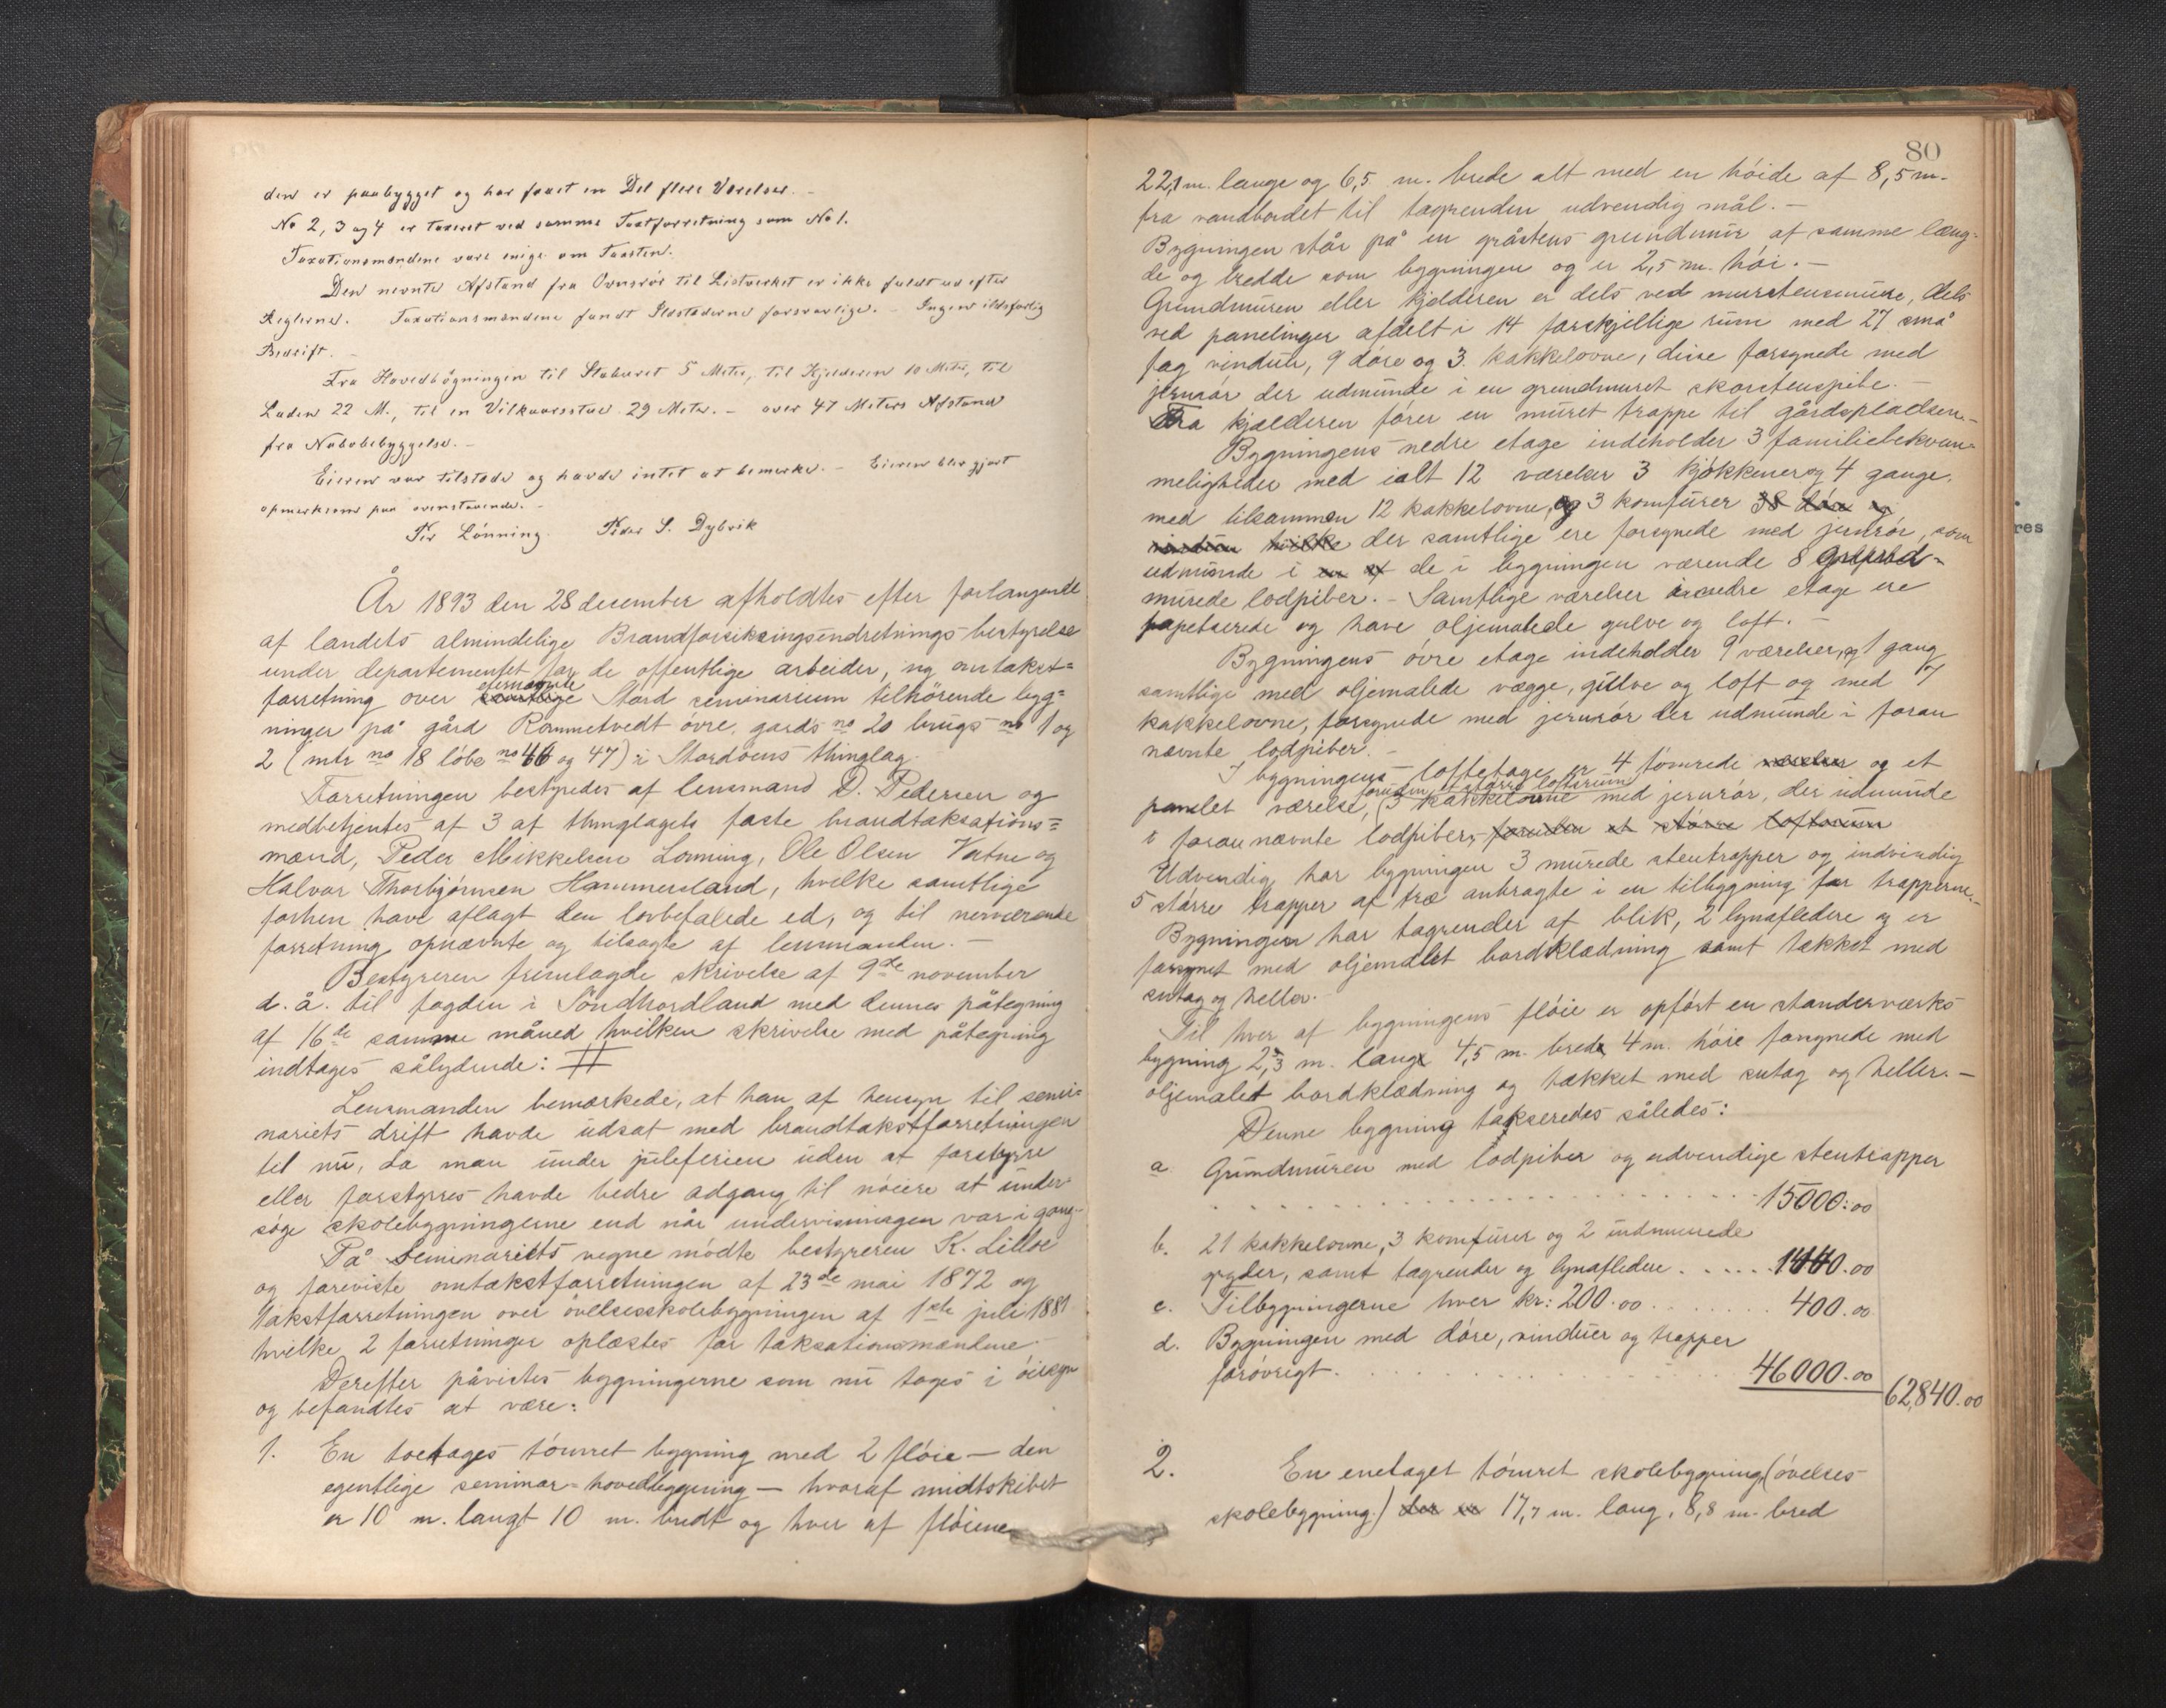 den er paabygget og har faaet en Del flere Værelser. –
No 2, 3 og 4 er taxeret ved samme Taxtforretning som No 1.
Taxationsmændene vare enige om Taxsten.
Den nevnte Afstand fra Ovnsrör til Listverket er ikke fuldt ud efter
Reglerne. Taxationsmændene fandt Ildstederne forsvarlige. – Ingen ildsfarlig
Bedrift. –
Fra Hovedbögningen til Staburet 5 Meter, til Kjelderen 10 Meter, til
Laden 22 M., til en Vilkaarsstue 29 Meter. – over 47 Meters Afstand
fra Nabobebyggelse. –
Eieren var tilstede og havde intet at bemerke. – Eieren blev gjort
opmerksom paa ovenstaaende. –
Per Lönning Peder S. Dybvik
År 1893 den 28 december afholdtes efter forlangende
af landets almindelige Brandforsikringsindretnings bestyrelse
under departementet for de offentlige arbeider, ny omtakst=
forretning over samtlige Stord seminarium tilhörende byg=
ninger på gård Rommetvedt övre, gards no 20 brugs no 1 og
2 (mtr no 18 löbe no 46 og 47) i Stordöens thinglag.
Forretningen bestyredes af lensmand D. Pedersen og
medbetjentes af 3 af thinglagets faste brandtaksations=
mænd, Peder Mikkelsen Lönning, Ole Olsen Vatne og
Halvor Thorbjörnsen Hammersland, hvilke samtlige
forhen have aflagt den lovbefalede ed, og til nerværende
forretning opnævnte og tilsagte af lensmanden. –
Bestyreren fremlagde skrivelse af 9de november
d. å. til fogden i Söndhordland med dennes påtegning
af 16de samme måned hvilken skrivelse med påtegning
indtages sålydende: #
Lensmanden bemærkede, at han af hensyn til semi=
nariets drift havde udsat med brandtakstforretningen
til nu, da man under juleferien uden at forstyrre
eller forstyrres havde bedre adgang til nöiere at under
söge skolebygningerne end når undervisningen var i gang–
På Seminariets vegne mödte bestyreren K. Lilloe
og foreviste omtakstforretningen af 23de mai 1872 og
takstforretningen over övelsesskolebygningen af 1ste juli 1881
hvilke 2 forretninger oplæstes for taksationsmændene.
Derefter påvistes bygningerne som nu toges i öiesyn
og befandtes at være:
1. En toetages tömret bygning med 2 flöie – den
egentlige seminar=hovedbygning – hvoraf midtskibet
er 10 m. langt 10 m. bredt og hver af flöiene
80
22,1 m. lange og 6,5 m. brede alt med en höide af 8,5 m.
fra vandbordet til tagrenden udvendig mål. –
Bygningen står på en gråstens grundmur af samme læng-
de og bredde som bygningen og er 2,5 m. höi. –
Grundmuren eller kjelderen er dels ved murstensmure, dels
ved panelinger afdelt i 14 forskjellige rum med 27 små
fag vinduer, 9 döre og 3 kakkelovne, disse forsynede med
jernrör der udmunde i en grundmuret skorstenspibe. –
Fra kjælderen förer en muret trappe til gårdspladsen. –
Bygningens nedre etage indeholder 3 familiebekvem-
meligheder med ialt 12 værelser 3 kjökkener og 4 gange,
med tilsammen 12 kakkelovne, og 3 komfurer 38 döre og
vinduer hvilke der samtlige ere forsynede med jernrör, som
udmunde i en af de i bygningen værende 8
murede lodpiber. – Samtlige værelser i nedre etage ere
papetserede og have oljemalede gulve og loft. –
Bygningens övre etage indeholder 9 værelser, og 1 gang
samtlige med oljemalede vægge, gulve og loft og med 7
kakkelovne, forsynede med jernrör der udmunde i foran
nævnte lodpiber. –
I bygningens loftetage er 4 tömrede værelser og et
panelet værelse, foruden et större loftsrum 3 kakkelovne med jernrör, der udmunde
i forannævnte lodpiber, foruden et större loftsrum
Udvendig har bygningen 3 murede stentrapper og indvindig
5 större trapper af træ anbragte i en tilbygning for trapperne. –
Bygningen har tagrender af blik, 2 lynafledere og er
forsynet med oljemalet bordklædning samt tækket med
sutag og heller.
Til hver af bygningens flöie er opfört en standerværks
bygning 2,3 m. lang 4,5 m. bred 4 m. höie forsynede med
oljemalet bordklædning og tækket med sutag og heller. –
Denne bygning takseredes således:
a. Grundmuren med lodpiber og udvendige stentrapper
15000:00
b. 21 kakkelovne, 3 komfurer og 2 indmurede
gryder, samt tagrender og lynafledere . . . . . 1440.00
c. Tilbygningerne hver kr: 200.00 . . . . . . . 400.00
d. Bygningen med döre, vinduer og trapper
forövrigt . . . . . . . . . . 46000.00
62,840.00
2. En enetaget tömret skolebygning (övelses-
skolebygning) der er 17,7 m. lang, 8,8 m. bred